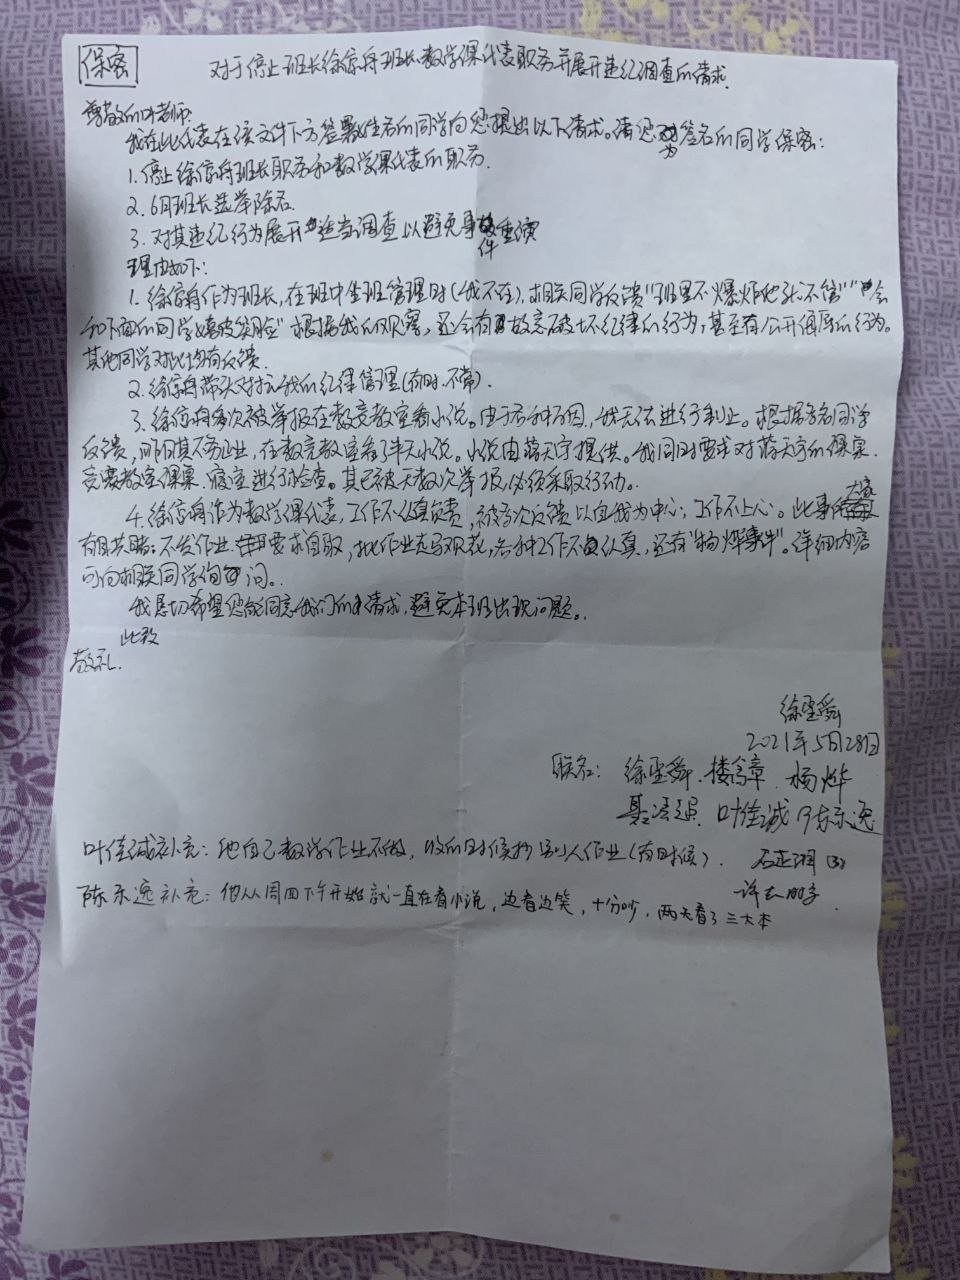 保密
对于停止班长徐宸舟班长、数学课代表职务并展开违纪调查的请求.
尊敬的叶老师:
我在此代表在该文件下方签署姓名的同学向您提出以下请求。请您为签名的同学保密:
1.停止徐宸舟班长职务和数学课代表的职务.
2.6月班长选举除名.
3.对其违纪行为展开适当调查以避免事件重演
理由如下:
1.徐宸舟作为班长,在班中坐班管理时(我不在),相关同学反馈"班里不爆炸他头不管""会
和下面的同学嬉皮笑脸"根据我的观察,还会有故意破坏纪律的行为,甚至有公开侮辱的行为。
其他同学对此均有反馈.
2.徐宸舟带头对抗我的纪律管理(有时.不常).
3.徐宸舟多次被举报在数竞教室看小说。由于各种原因,我无法进行制止。根据多名同学
反馈,近日其不务正业,在数竞教室看了半天小说。小说由蒋天宇提供。我同时要求对蒋天宇的课桌
竞赛教室课桌、寝室进行检查。其已被无数次举报,必须采取行动.
4.徐宸舟作为数学课代表,工作不认真负责,被多次反馈以自我为中心;工作不上心。此事件大家
有目共睹:不发作业.要求自取,批作业走马观花,各种工作不认真,还有"杨烨事件"。详细内容
可向相关同学询问.
我恳切希望您能同意我们的请求,避免本班出现问题.
此致
敬礼.
徐圣舜
2021年5月28日
联名: 徐圣舜.楼 章 杨烨
叶佳诚 陈乐逸
叶佳诚补充:他自己数学作业不做,收的时候抄别人作业(有时候). 石正 (3)
陈乐逸补充:他从周四下午开始就一直在看小说,边看边笑,十分吵,两天看了三大本
许